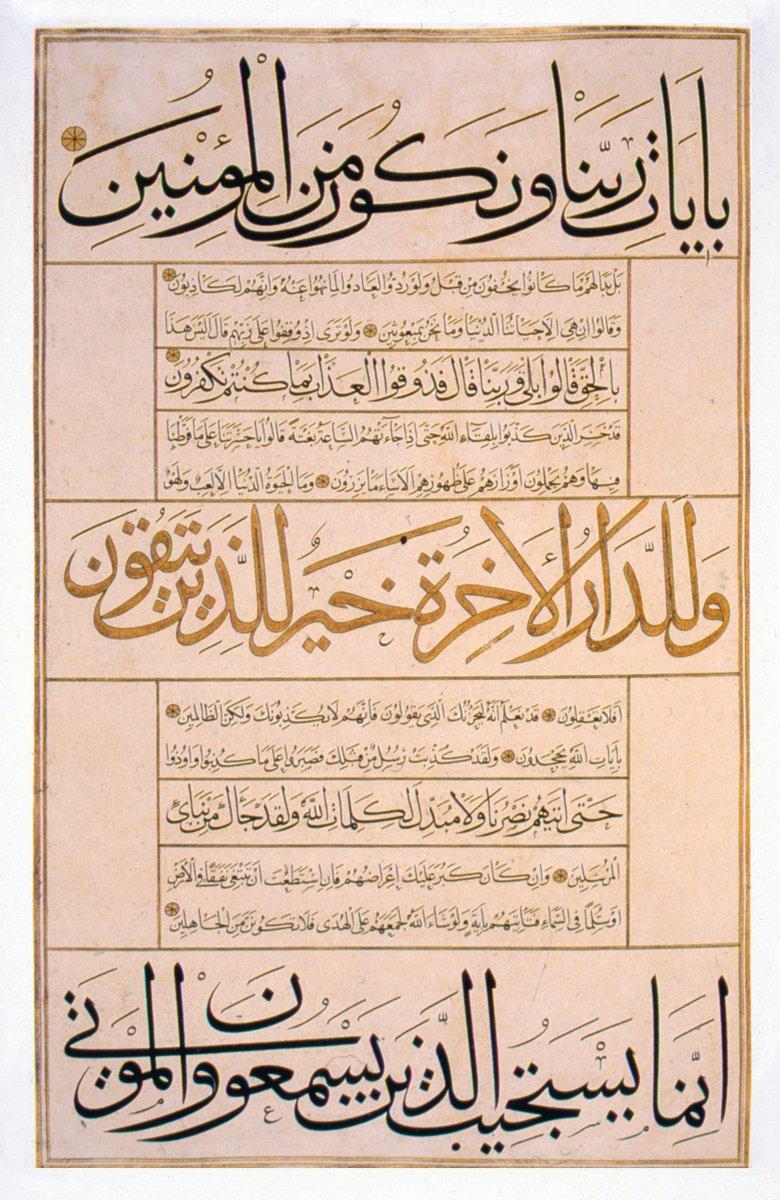 بِايَاتِ رَبِّنَا وَنَكُونَ مِنَ الْمُؤْمِنِينَ
بَلْ بَدَا لَهُمْ مَا كَانُوا يُخْفُونَ مِنْ قَبْلُ وَلَوْ رُدُّوا لَعَادُوا لِمَا نُهُوا عَنْهُ وَاِنَّهُمْ لَكَاذِبُونَ
وَقَالُوا اِنْ هِيَ اِلَّا حَيَاتُنَا الدُّنْيَا وَمَا نَحْنُ بِمَبْعُوثِينَ وَلَوْ تَرَى اِذْ وُقِفُوا عَلَى رَبِّهِمْ قَالَ اَلَيْسَ هَذَا
بِالْحَقِّ قَالُوا بَلَى وَرَبِّنَا قَالَ فَذُوقُوا الْعَذَابَ بِمَا كُنْتُمْ تَكْفُرُونَ
قَدْ خَسِرَ الَّذِينَ كَذَّبُوا بِلِقَاءِ اللَّهِ حَتَّى اِذَا جَاءَتْهُمُ السَّاعَةُ بَغْتَةً قَالُوا يَا حَسْرَتَنَا عَلَى مَا فَرَّطْنَا
فِيهَا وَهُمْ يَحْمِلُونَ اَوْزَارَهُمْ عَلَى ظُهُورِهِمْ اَلَا سَاءَ مَا يَزِرُونَ وَمَا الْحَيٰوةُ الدُّنْيَا اِلَّا لَعِبٌ وَلَهْوٌ
وَلَلدَّارُ الْاخِرَةُ خَيْرٌ لِلَّذِينَ يَتَّقُونَ
اَفَلَا تَعْقِلُونَ قَدْ نَعْلَمُ اِنَّهُ لَيَحْزُنُكَ الَّذِي يَقُولُونَ فَاِنَّهُمْ لَا يُكَذِّبُونَكَ وَلَكِنَّ الظَّالِمِينَ
بِايَاتِ اللَّهِ يَجْحَدُونَ وَلَقَدْ كُذِّبَتْ رُسُلٌ مِنْ قَبْلِكَ فَصَبَرُوا عَلَى مَا كُذِّبُوا وَاُوذُوا
حَتَّى اَتيهُمْ نَصْرُنَا وَلَا مُبَدِّلَ لِكَلِمَاتِ اللَّهِ وَلَقَدْ جَاءَكَ مِنْ نَبَاىِ
الْمُرْسَلِينَ وَاِنْ كَانَ كَبُرَ عَلَيْكَ اِعْرَاضُهُمْ فَاِنِ اسْتَطَعْتَ اَنْ تَبْتَغِيَ نَفَقًا فِي الْاَرْضِ
اَوْ سُلَّمًا فِي السَّمَاءِ فَتَاْتِيَهُمْ بِايَةٍ وَلَوْ شَاءَ اللَّهُ لَجَمَعَهُمْ عَلَى الْهُدَى فَلَا تَكُونَنَّ مِنَ الْجَاهِلِينَ
اِنَّمَا يَسْتَجِيبُ الَّذِينَ يَسْمَعُونَ وَالْمَوْتَى